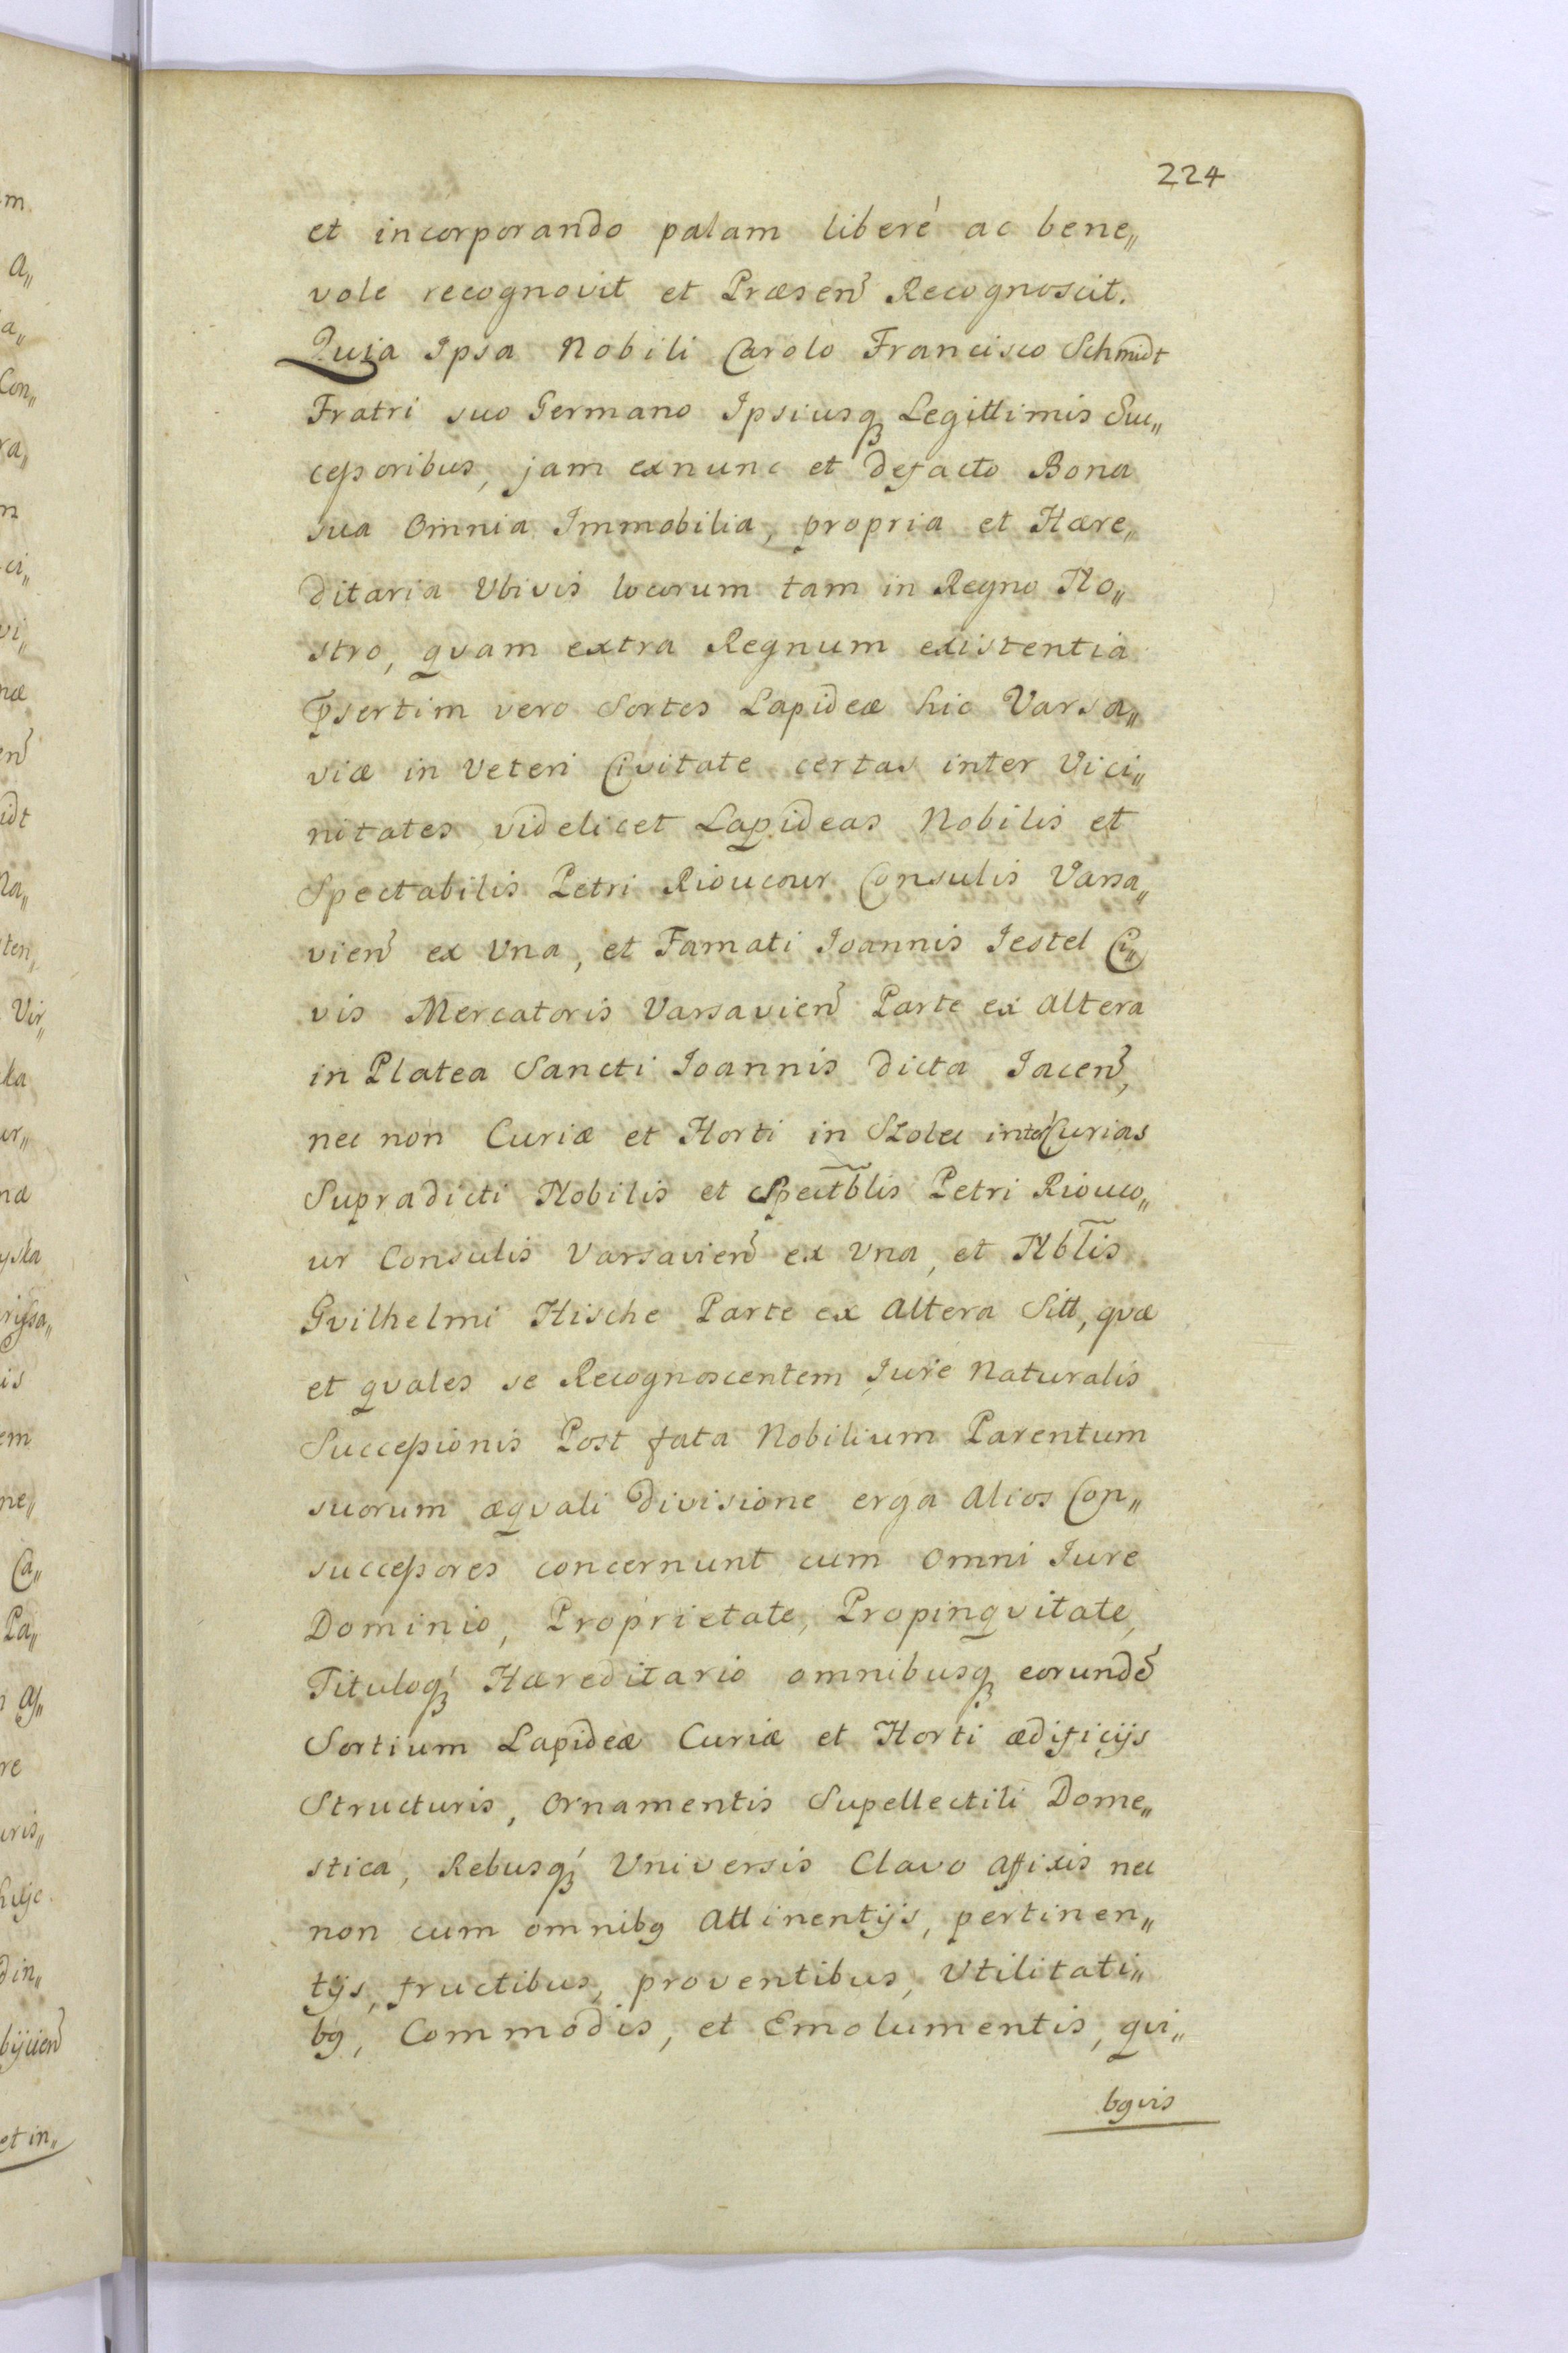 224
et incorporando palam liberé ac bene„
vole recognovit et Præsen̄ Recognoscit.
Quia Ipsa Nobili Carolo Francisco Schmidt
Fratri suo Germano Ipsiusq₃ Legittimis Suc„
cessoribus, jam exnunc et defacto Bona
sua Omnia Immobilia, propria et Hære„
ditaria Ubivis locorum tam in Regno No„
stro, qvam extra Regnum existentia
P̃sertim vero Sortes Lapideæ hic Varsa„
viæ in Veteri Civitate certas inter Vici„
nitates videlicet Lapideas Nobilis et
Spectabilis Petri Rioucour Consulis Varsa„
vien̄ ex Una, et Famati Joannis Jestel Ci„
vis Mercatoris Varsavien̄ Parte ex Altera
in Platea Sancti Joannis dicta Jacen̄,
nec non Curiæ et Horti in Szolec inter Curias
Supradicti Nobilis et Spectb̃lis Petri Riouco„
ur Consulis Varsavien̄ ex Una, et Nbl̃is
Gvilhelmi Hische Parte ex Altera Sitt, qvæ
et qvales se Recognoscentem Jure Naturalis
Successionis Post fata Nobilium Parentum
suorum æqvali Divisione erga Alios Con„
successores concernunt cum Omni Jure
Dominio, Proprietate, Propinqvitate,
Tituloq₃ Hæreditario omnibusq₃ eorundē
Sortium Lapideæ Curiæ et Horti ædificijs
Structuris, Ornamentis Supellectili Dome„
stica, Rebusq₃ Universis Clavo Affixis nec
non cum omnibg Attinentijs, pertinen„
tijs, fructibus, proventibus, Utilitati„
bg, Commodis, et Emolumentis, qvi„
bgvis